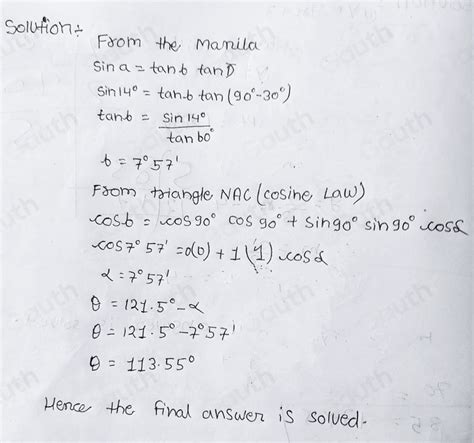 Solution:-
From the Manila
Sin a = tan b tan D̅
Sin 14° = tan b tan (90° - 30°)
tan b = sin 14° / tan 60°
b = 7° 57'
From triangle NAC (cosine Law)
cos b = cos 90° cos 90° + Sin 90° sin 90° cos α
cos 7° 57' = 0(0) + 1 (1) cos α
α = 7° 57'
θ = 121.5° - α
θ = 121.5° - 7° 57'
θ = 113.55°
Hence the final answer is solved.